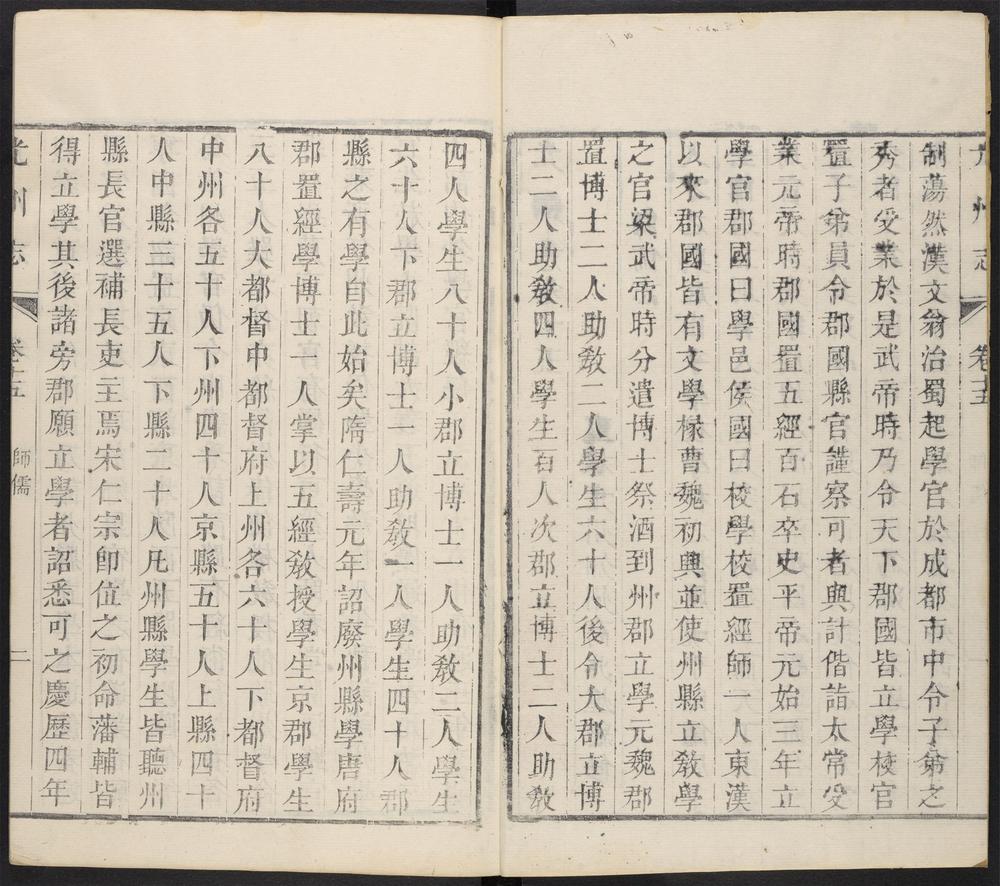 州志
卷十五
制蕩然漢文翁治蜀起學官於成都市中令子弟之
秀者受業於是武帝時乃令天下郡國皆立學校官
置子弟員令郡國縣官謹察可者與計偕詣太常受
業元帝時郡國置五經百石卒史平帝元始三年立
學官郡國曰學邑侯國曰校學校置經師一人東漢
以來郡國皆有文學椽曹魏初興並使州縣立敎學
之官梁武帝時分遣博士祭酒到州郡立學元魏郡
置博士二人助敎二人學生六十人後令大郡立博
士二人助敎四人學生百人次郡立博士二人助敎
四人學生八十人小郡立博士一人助敎二人學生
六十人下郡立博士一人助敎一人學生四十人郡
縣之有學自此始矣隋仁壽元年詔廢州縣學唐府
郡置經學博士一人掌以五經敎授學生京郡學生
八十人大都督中都督府上州各六十人下都督府
中州各五十人下州四十人京縣五十人上縣四十
人中縣三十五人下縣二十人凡州縣學生皆聽州
縣長官選補長吏主焉宋仁宗卽位之初命藩輔皆
得立學其後諸旁郡願立學者詔悉可之慶歷四年
光州志
卷十五
師儒
二